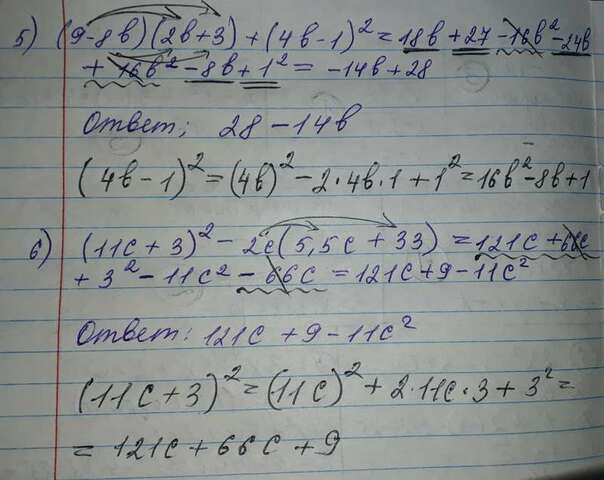 5) (9-8в)(2в+3)+(4в-1)²=18в+27-16в²-24в
+16в²-8в+1²=-14в+28
Ответ; 28-14в
(4в-1)²=(4в)²-2·4в·1+1²=16в²-8в+1
6) (11с+3)²-2с(5,5с+33)=121с+66с
+3²-11с²-66с=121с+9-11с²
Ответ: 121с+9-11с²
(11с+3)²=(11с)²+2·11с·3+3²=
=121с+66с+9